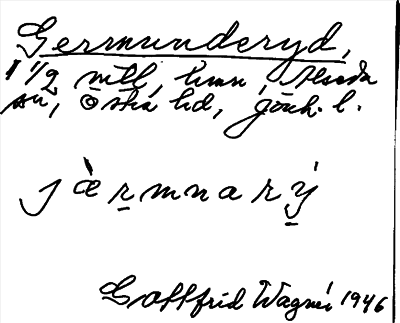 Germunderyd,
1 1/2 mtl, hmn, Alseda
sn, Östra hd, Jönk. l.
jàr̲mnarý̲
Gottfrid Wagnér 1946